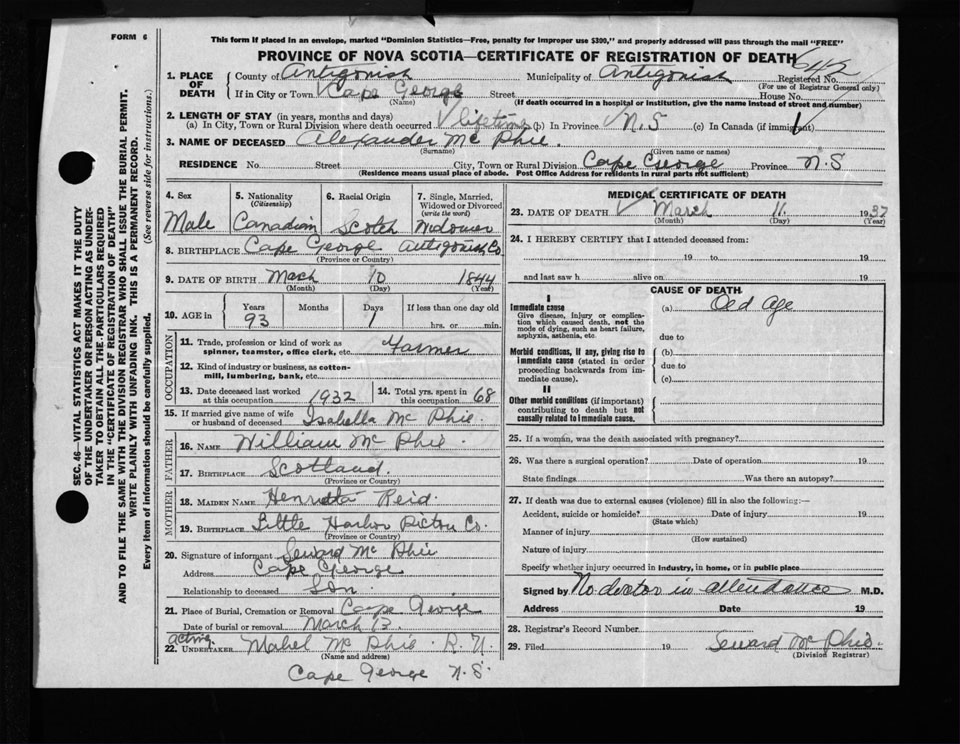 FORM 6
This form if placed in an envelope, marked "Dominion Statistics—Free, penalty for improper use $300," and properly addressed will pass through the mail "FREE"
PROVINCE OF NOVA SCOTIA—CERTIFICATE OF REGISTRATION OF DEATH
1. PLACE OF DEATH
County of Antigonish Municipality of Antigonish Registered No.
(For use of Registrar General only)
If in City or Town Cape George Street House No.
(Name) (If death occurred in a hospital or institution, give the name instead of street and number)
2. LENGTH OF STAY (in years, months and days)
(a) In City, Town or Rural Division where death occurred lifetime (b) In Province N.S (c) In Canada (if immigrant)
3. NAME OF DECEASED Alexander Mc Phie.
(Surname) (Given name or names)
RESIDENCE No. Street City, Town or Rural Division Cape George Province N.S
(Residence means usual place of abode. Post Office Address for residents in rural parts not sufficient)
4. Sex 5. Nationality (Citizenship) 6. Racial Origin 7. Single, Married, Widowed or Divorced (write the word)
Male Canadian Scotch Widower
8. BIRTHPLACE Cape George Antigonish Co
(Province or Country)
9. DATE OF BIRTH March 10 1844
(Month) (Day) (Year)
10. AGE in Years Months Days If less than one day old
93 1 hrs. or min.
OCCUPATION
11. Trade, profession or kind of work as spinner, teamster, office clerk, etc. Farmer
12. Kind of industry or business, as cotton-mill, lumbering, bank, etc.
13. Date deceased last worked at this occupation 1932 14. Total yrs. spent in this occupation 68
15. If married give name of wife or husband of deceased Isabella Mc Phie
FATHER
16. NAME William Mc Phie
17. BIRTHPLACE Scotland.
(Province or Country)
MOTHER
18. MAIDEN NAME Henrietta Reid.
19. BIRTHPLACE Little Harbor Pictou Co.
(Province or Country)
20. Signature of informant Seward Mc Phie
Address Cape George
Relationship to deceased Son
21. Place of Burial, Cremation or Removal Cape George
Date of burial or removal March 13
acting
22. UNDERTAKER Mabel Mc Phie R.N
(Name and address)
Cape George N.S.
MEDICAL CERTIFICATE OF DEATH
23. DATE OF DEATH March 11. 1937
(Month) (Day) (Year)
24. I HEREBY CERTIFY that I attended deceased from:
19 to 19
and last saw h alive on 19
CAUSE OF DEATH
I
Immediate cause
Give disease, injury or complication which caused death, not the mode of dying, such as heart failure, asphyxia, asthenia, etc.
(a) Old Age
due to
Morbid conditions, if any, giving rise to immediate cause (stated in order proceeding backwards from immediate cause).
(b)
due to
(c)
II
Other morbid conditions (if important) contributing to death but not causally related to immediate cause.
25. If a woman, was the death associated with pregnancy?
26. Was there a surgical operation? Date of operation 19
State findings Was there an autopsy?
27. If death was due to external causes (violence) fill in also the following:—
Accident, suicide or homicide? Date of injury 19
(State which)
Manner of injury
(How sustained)
Nature of injury
Specify whether injury occurred in industry, in home, or in public place
Signed by No doctor in attendance M.D.
Address Date 19
28. Registrar's Record Number
29. Filed 19 Seward Mc Phie.
(Division Registrar)
SEC. 46—VITAL STATISTICS ACT MAKES IT THE DUTY
OF THE UNDERTAKER OR PERSON ACTING AS UNDER-
TAKER TO OBTAIN ALL THE PARTICULARS REQUIRED
IN THE "CERTIFICATE OF REGISTRATION OF DEATH"
AND TO FILE THE SAME WITH THE DIVISION REGISTRAR WHO SHALL ISSUE THE BURIAL PERMIT.
WRITE PLAINLY WITH UNFADING INK. THIS IS A PERMANENT RECORD.
Every item of information should be carefully supplied. (See reverse side for instructions.)